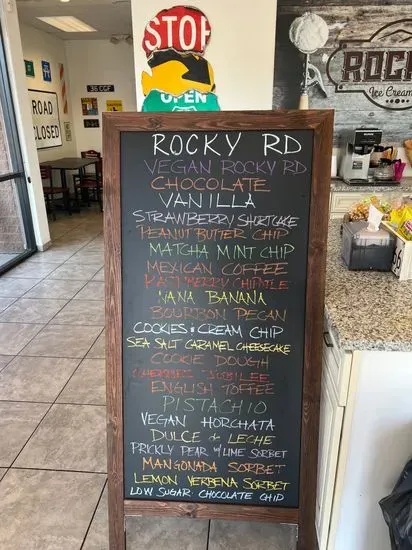 STOP
OPEN
ROAD
CLOSED
36 CGF
ROCK
Ice Cream
ROCKY RD
VEGAN ROCKY RD
CHOCOLATE
VANILLA
STRAWBERRY SHORTCAKE
PEANUT BUTTER CHIP
MATCHA MINT CHIP
MEXICAN COFFEE
RASPBERRY CHIPOTLE
NANA BANANA
BOURBON PECAN
COOKIES & CREAM CHIP
SEA SALT CARAMEL CHEESECAKE
COOKIE DOUGH
CHERRIES JUBILEE
ENGLISH TOFFEE
PISTACHIO
VEGAN HORCHATA
DULCE de LECHE
PRICKLY PEAR W/ LIME SORBET
MANGONADA SORBET
LEMON VERBENA SORBET
LOW SUGAR CHOCOLATE CHIP